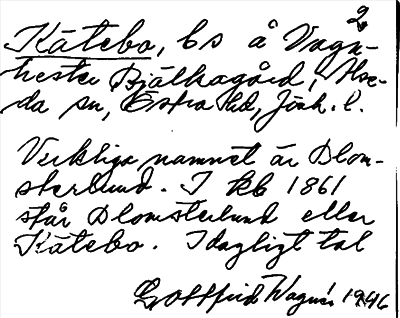 2
Kätebo, ls å Vagn-
hester Bjälkagård, Alse-
da sn, Östra hd, Jönk. l.
Verkliga namnet är Blom-
sterlund. I kb 1861
står Blomsterlund eller
Kätebo. I dagligt tal
Gottfrid Wagnér 1946